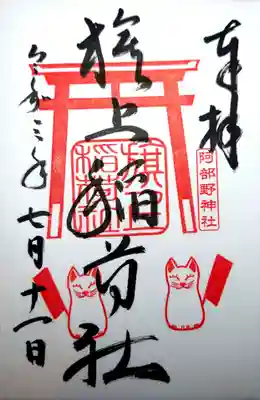 奉拝
阿部野神社
旗上稲荷社
旗上稲荷
令和三年 七月十一日